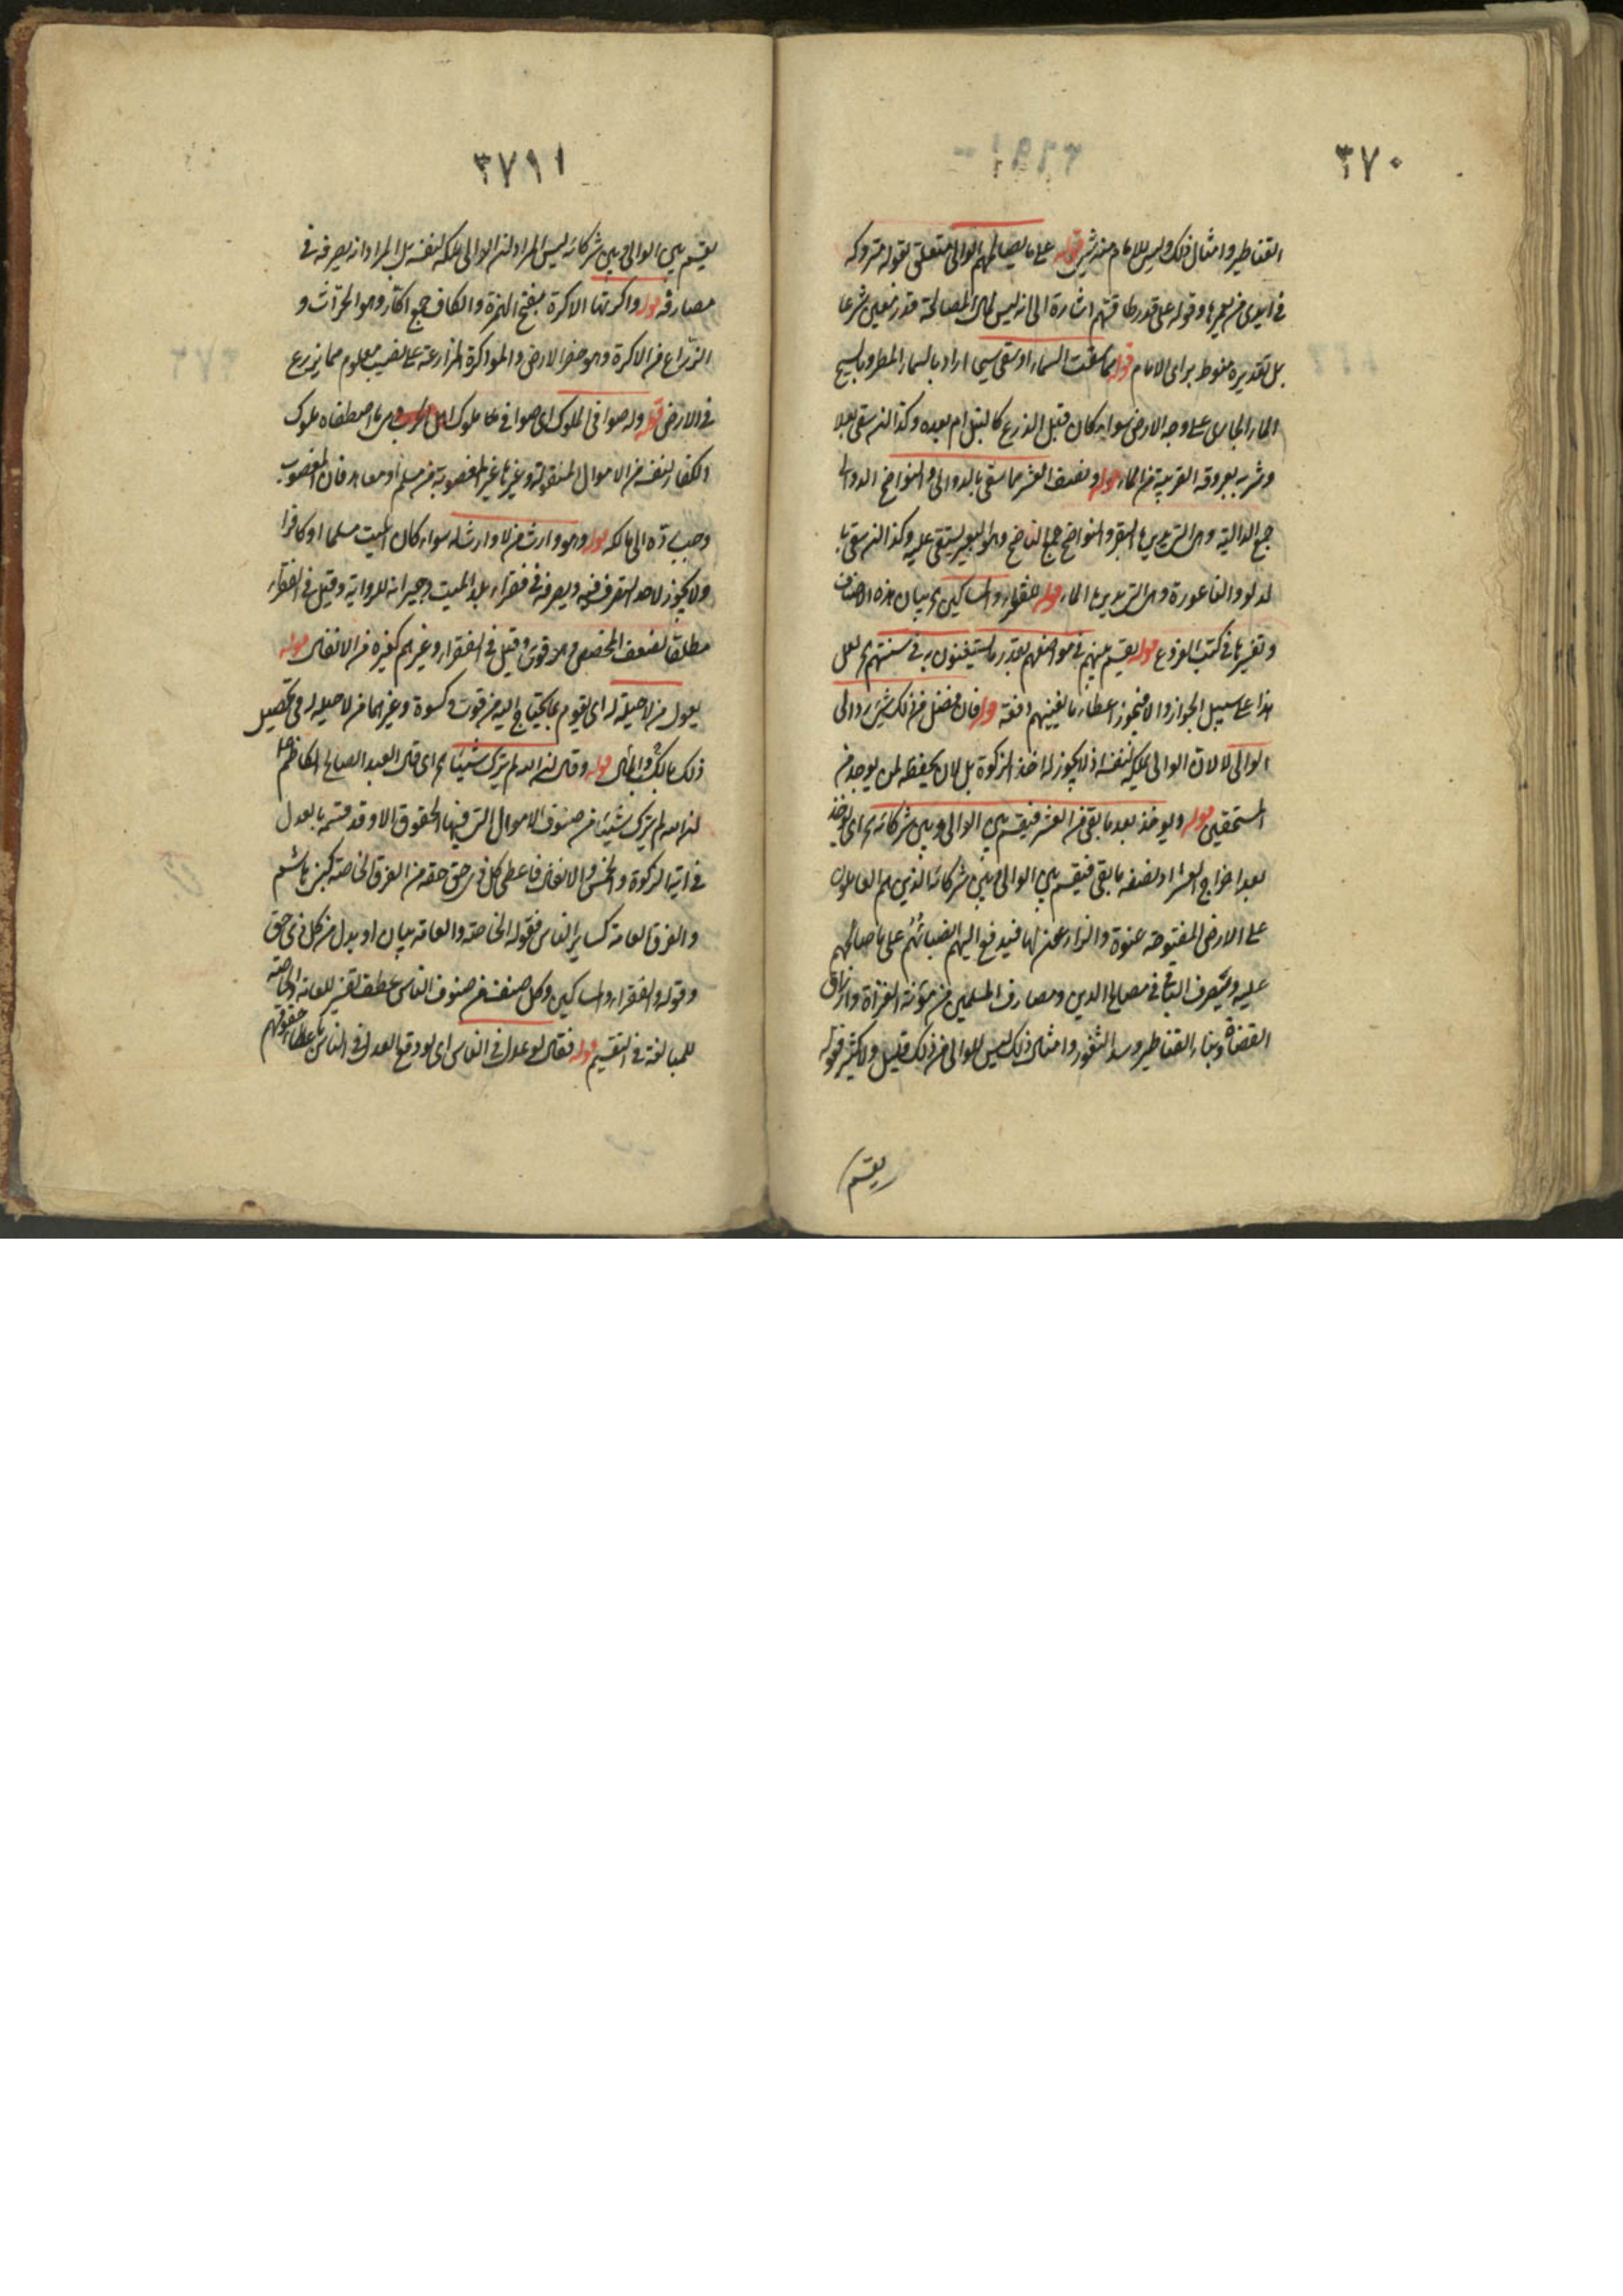 ٣٧٠
القناطير وامثال ذلك وليس للامام منه شئ قوله على ما يصالحهم الوالى متعلق بقوله متروكة
فى ايدى من يعمرها وقوله على قدر طاقتهم اشارة الى انه ليس لمال المصالحة قدر معين شرعا
بل تقديره منوط براى الامام قوله مما سقت السماء او سقى سيحا اراد بالسماء المطر وبالسيح
الماء الجارى على وجه الارض سواء كان قبل الزرع كالنيل ام بعده وكذا لنر سقى بعلا
وشربه بعروقه القريبة من الماء قوله ونصف العشر مما سقى بالدوالى والنواضح الدوالى
جمع الدالية وهى التى يديرها البقر والنواضح جمع الناضح وهو البعير يستقى عليه وكذا لنر سقى با
لدلو والناعورة وهى التى يديرها الماء قوله للفقراء والمساكين بيان هذه الاصناف
وتفسيرها فى كتب الفروع قوله يقسم بينهم فى مواضعهم بقدر ما يستغنون به فى سنتهم لعل
هذا على سبيل الجواز والا فيجوز اعطاء ما يغنيهم دفعة قوله فان فضل من ذلك شئ رد الى
الوالى لا لان الوالى يملكه لنفسه اذ لا يجوز له اخذ الزكوة بل لان يحفظه لمن يوجد من
المستحقين قوله ويوخذ بعد ما بقى من العشر فيقسم بين الوالى وبين شركائه اى يوخذ
بعد اخراج العشر او نصفه ما بقى فيقسم بين الوالى وبين شركائه الذين هم العاملون
على الارض المفتوحة عنوة والزارعين لها فيدفع اليهم انصبائهم على ما صالحهم
عليه ويصرف الباقى فى مصالح الدين ومصارف المسلمين من مؤنة الغزاة وارزاق
القضاة وبناء القناطير وسد الثغور وامثال ذلك ليس للوالى من ذلك قليل ولا كثير فقوله
يقسم
٣٧١
يقسم بين الوالى وبين شركائه ليس المراد لنر الوالى يملكه لنفسه بل المراد انه يصرفه فى
مصارفه قوله واكرتها الاكرة بفتح الهمزة والكاف جمع اكار وهو الحراث و
الزراع من الاكرة وهو حفر الارض والمواكرة المزارعة على نصيب معلوم مما يزرع
فى الارض قوله وله صوافى الملوك اى صوافى ملوك اهل الحرب وهى ما اصطفاه ملوك
الكفار لنفسه من الاموال المنقولة وغيرها غير المغصوبة من مسلم او معاهد فان المغصوب
وجب رده الى مالكه قوله وهو وارث من لا وارث له سواء كان الميت مسلما او كافرا
ولا يجوز لاحد التصرف فيه ويصرفه فى فقراء بلد الميت وجيرانه للرواية وقيل فى الفقراء
مطلقا لضعف المخصص وهو قوى وقيل فى الفقراء وغيرهم كغيره من الانفال قوله
يعول من لا حيلة له اى يقوم بما يحتاج اليه من قوت وكسوة وغيرهما من لا حيلة له فى تحصيل
ذلك بالكسب والمال قوله وقال لنر الله لم يترك شيئا اى قال العبد الصالح الكاظم
لنر الله لم يترك شيئا من صنوف الاموال التى فيها الحقوق الا وقد قسمه بالعدل
فى اية الزكوة والخمس والانفال فاعطى كل ذى حق حقه من الفرق الخاصة كبنى هاشم
والفرق العامة كساير الناس فقوله الخاصة والعامة بيان او بدل من كل ذى حق
وقوله والفقراء والمساكين وكل صنف من صنوف الناس عطف تفسير للعامة او الخاصة
للمبالغة فى التقسيم قوله فقال لو عدل فى الناس اى لو وقع العدل فى الناس باعطاء حقوقهم